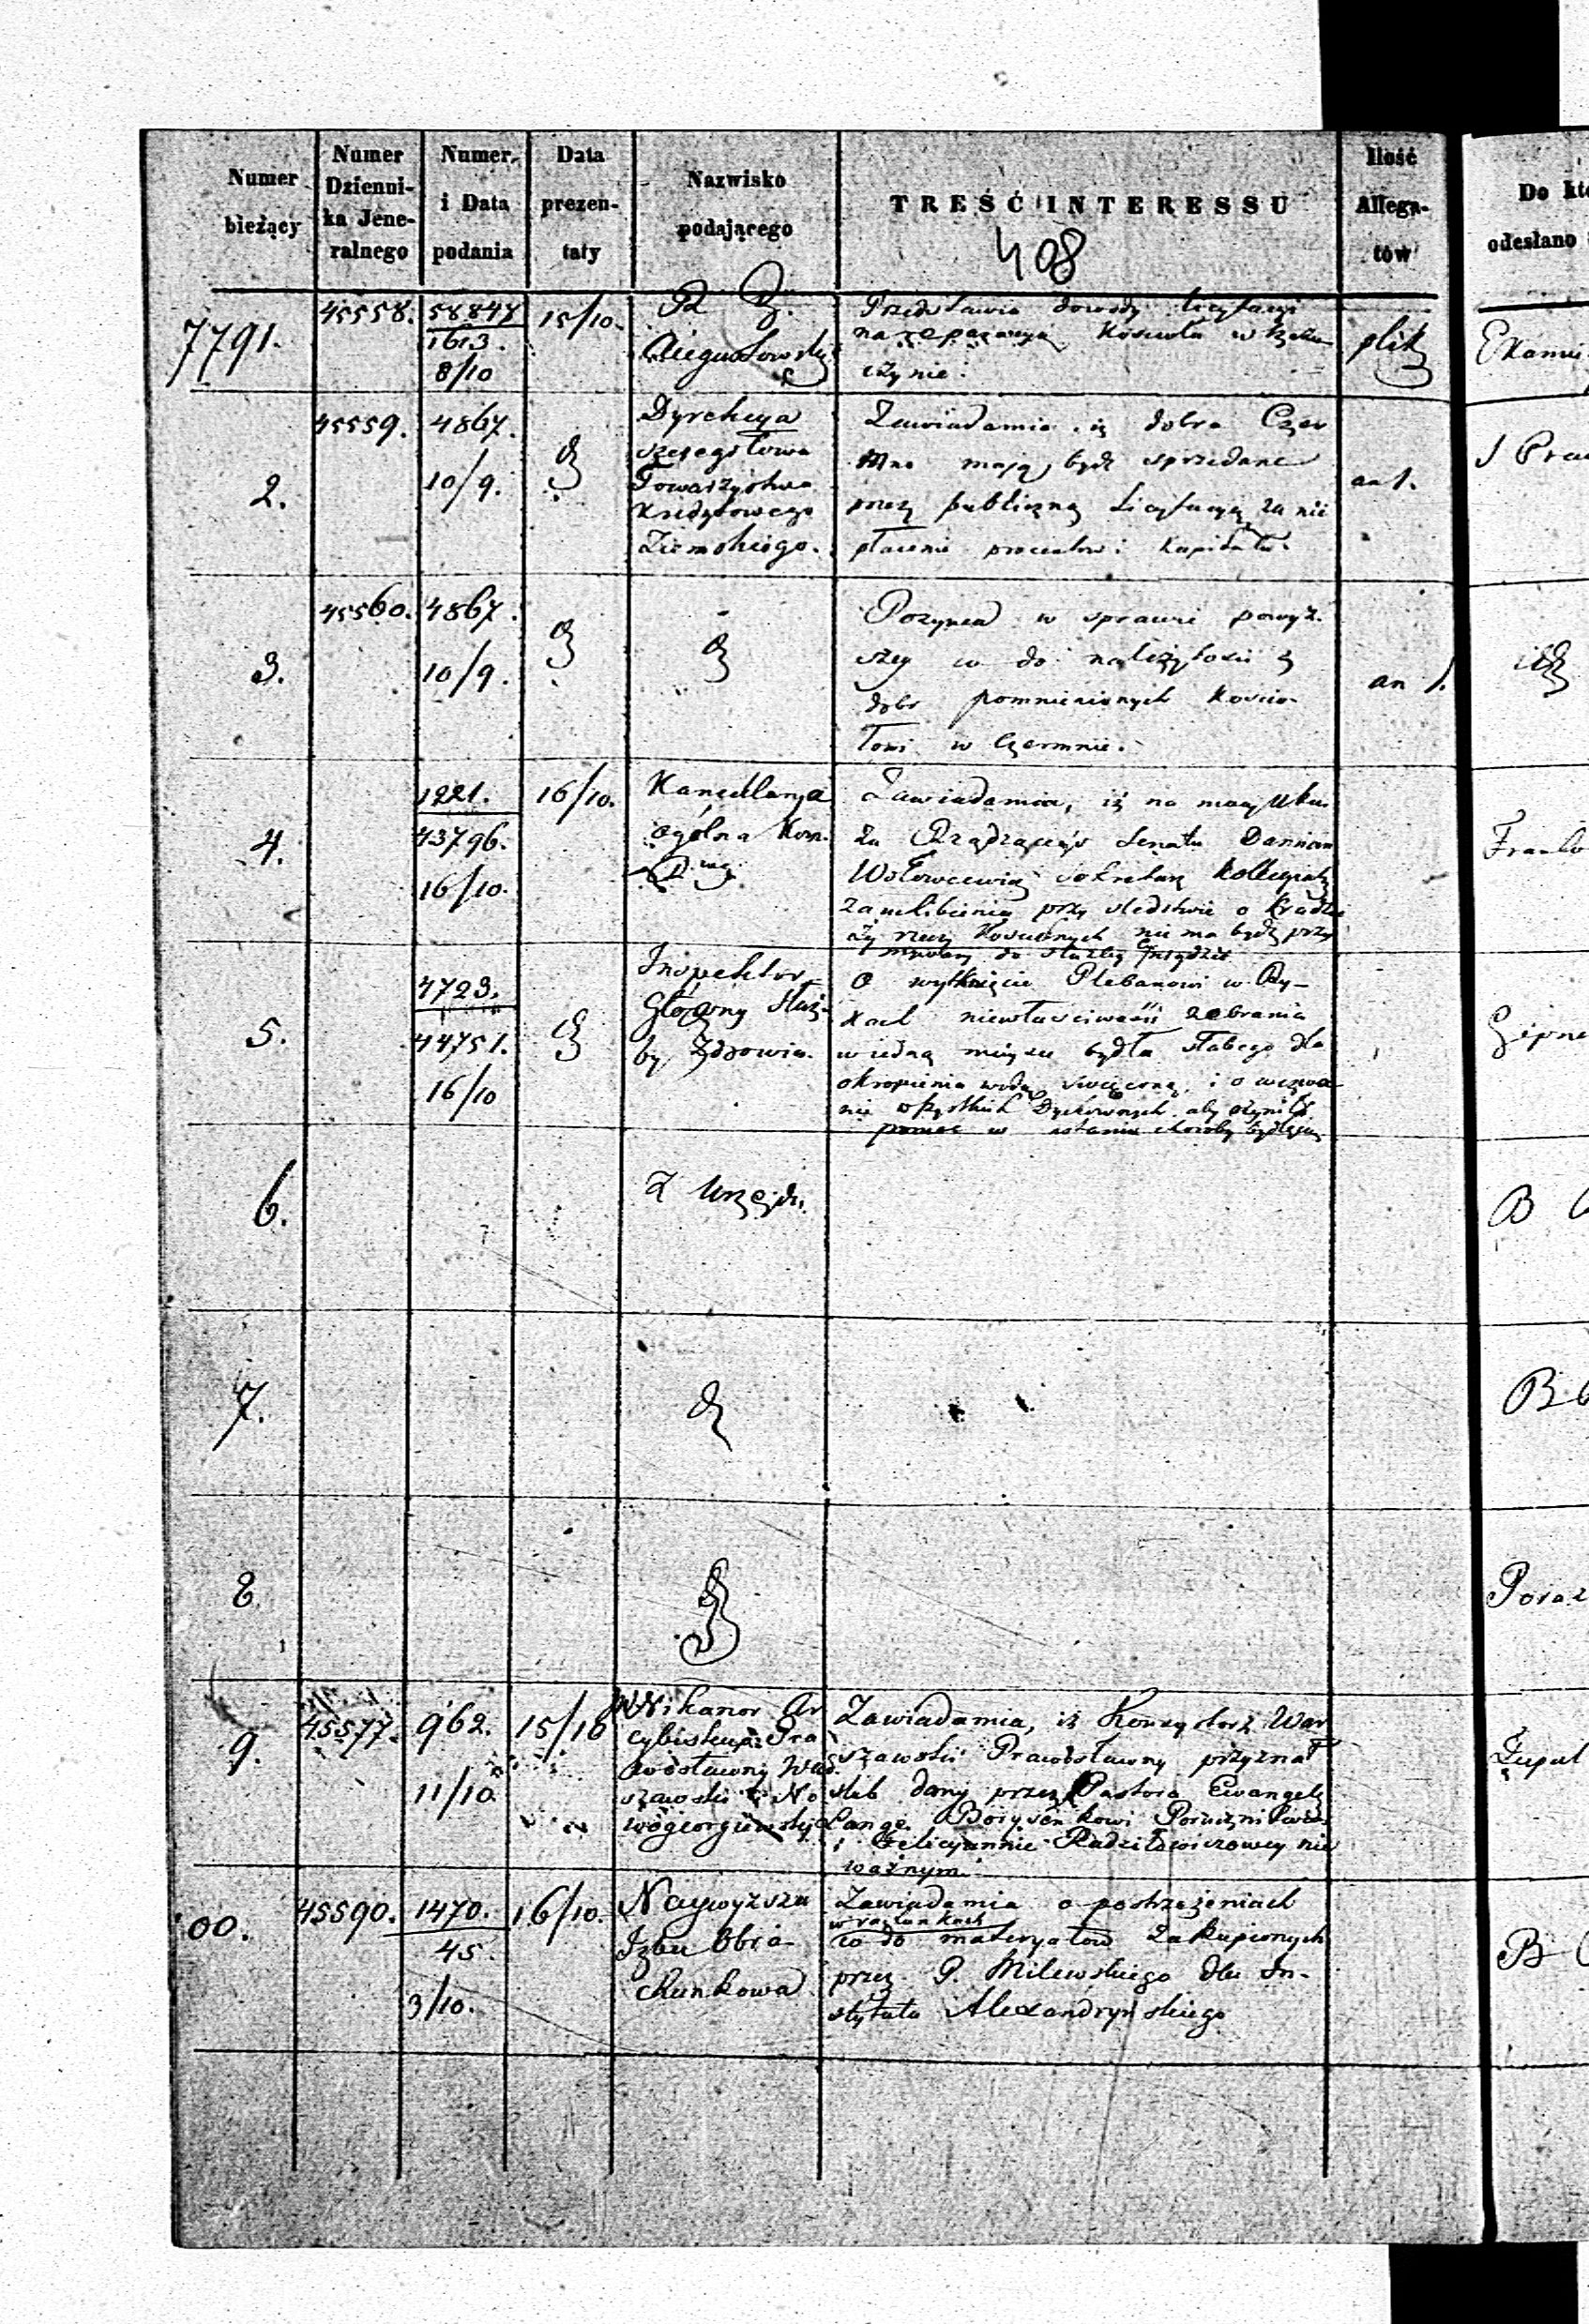 Numer bieżący
Numer Dzienni-
ka Jene-
ralnego
Numer
i Data
podania
Data
prezen-
taty
Nazwisko
podającego
TREŚĆ INTERESSU
408
Ilość
Allega-
tów
Do któ
odesłano
7791.
45558.
58848
1613.
8/10
15/10.
R. G.
Augustowski
Przedstawia dowody licytacyi
na reparacyą Kościoła w
czynie.
plik
2.
45559.
4867.
10/9.
Dyrekcya
szczegółowa
Towarzystwa
Kredytowego
Ziemskiego.
Zawiadamia, iż dobra Czer
mno mają być sprzedane
przez publiczną Licytacyą za nie
płacenie procentów i Kapitału.
an 1.
3.
45560.
4867.
10/9.
Pozywa w sprawie powyż.
szey co do należytości z
dóbr pomnienionych Kościo-
łowi w Czermnie.
an 1.
4.
1221.
43796.
16/10.
16/10.
Kancellarya
ogólna Kom.
Zawiadamia, iż na mocy Uka
zu Rządzącego Senatu
Sekretarz Kollegialny
przy śledstwie o kradzie
ży rzeczy Kościelnych nie ma być przy
do służby
5.
4723.
44751.
16/10
Inspektor
Główny Służ-
by Zdrowia.
O wytknięcie Plebanowi w
niewłaściwości zebrania
w jedną miejsce bydła słabego dla
okropienia wodą święconą, i o wezwa-
nie wszystkich Duchownych aby czynili
pomoc w choroby bydlęcey
6.
Z Urzędu.
B
7.
B
8
9.
45577.
962.
11/10
15/10
Nikanor Ar
cybiskup Pra
wosławny War
szawski i No
wogeorgiewski
Zawiadamia, iż Konsystorz War
szawski Prawosławny przyznał
ślub dany przez Pastora Ewangely
Lange Borysenkowi
i Felicyannie Radziłowiczowey nie
ważnym.
00.
45590.
1470.
45.
3/10.
16/10.
Naywyższa
Izba Obra-
chunkowa
Zawiadamia o postrzeżeniach
w rachunkach
co do materyałów zakupionych
przez P. Milewskiego dla In-
stytutu Alexandryńskiego
B